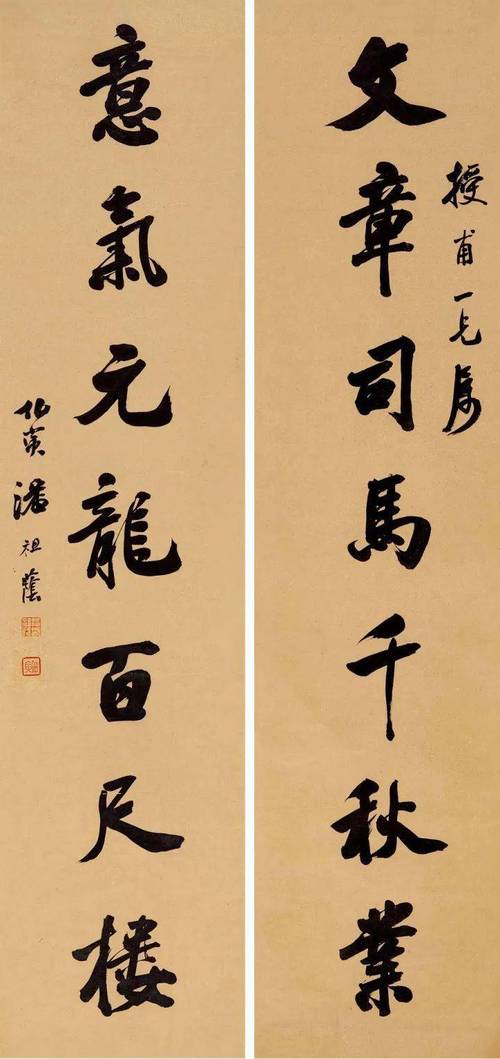 文章司馬千秋業
授甫一兄属
意氣元龍百尺樓
伯寅潘祖蔭